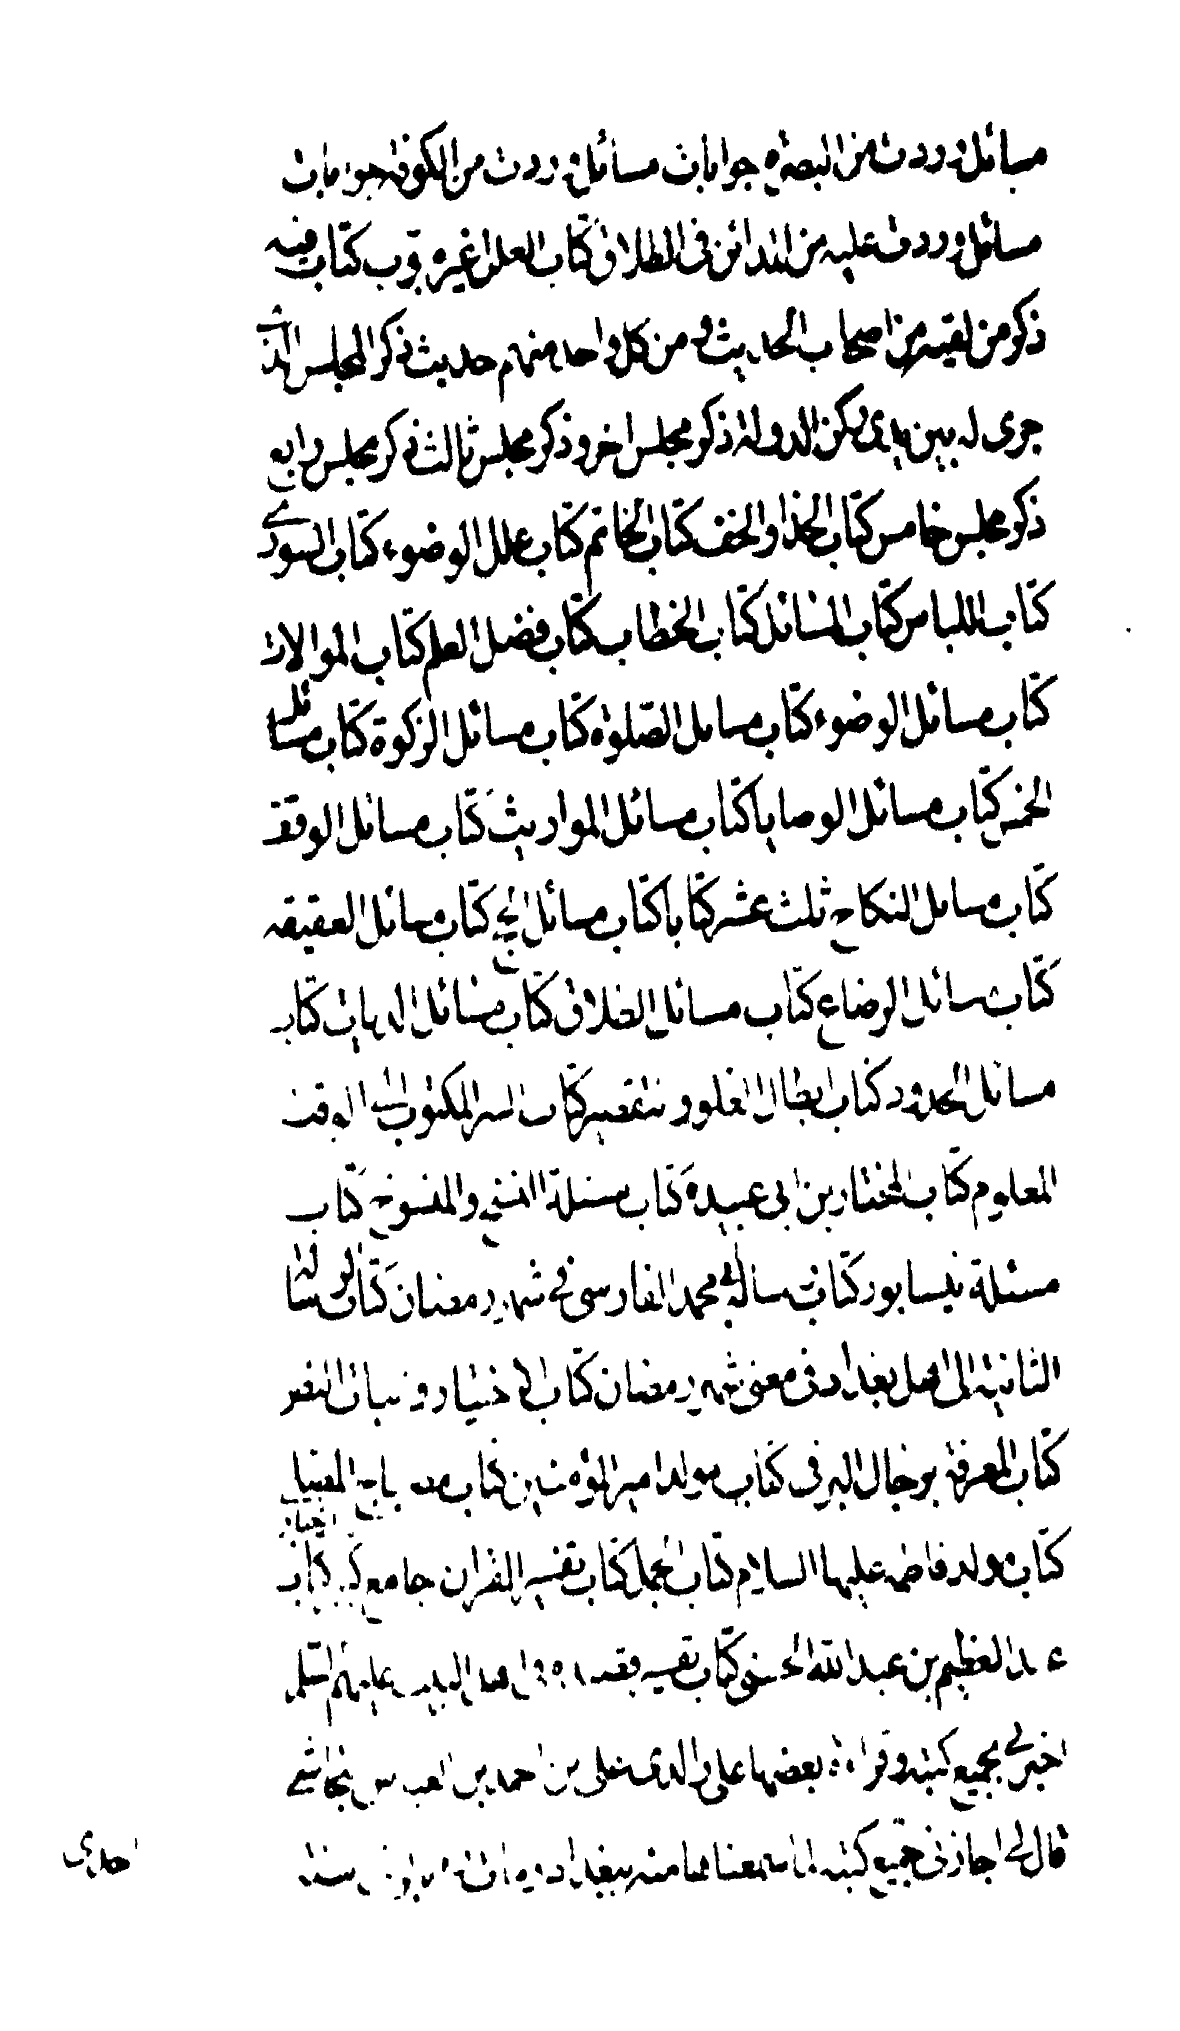 مسائل وردت من البصرة جوابات مسائل وردت من الكوفة جوابات
مسائل وردت عليه من المدائن في الطلاق كتاب العلل غير مبوب كتاب فيه
ذكر من لقيه من اصحاب الحديث و من كل واحد منهم حديث ذكر المجلس الذي
جرى له بين يدي ركن الدولة ذكر مجلس اخر و ذكر مجلس ثالث ذكر مجلس رابع
ذكر مجلس خامس كتاب الحذا و الخف كتاب الخاتم كتاب علل الوضوء كتاب الشورى
كتاب اللباس كتاب المسائل كتاب الخطاب كتاب فضل العلم كتاب الموالات
كتاب مسائل الوضوء كتاب مسايل الصلوة كتاب مسائل الزكوة كتاب مسائل
الخمس كتاب مسائل الوصايا كتاب مسائل المواريث كتاب مسائل الوقف
كتاب مسايل النكاح ثلث عشر كتابا كتاب مسائل الحج كتاب مسائل العقيقه
كتاب مسائل الرضاع كتاب مسائل الطلاق كتاب مسائل الديات كتاب
مسائل الحدود كتاب ابطال الغلو و التقصير كتاب السر المكتوب الى الوقت
المعلوم كتاب المختار بن ابي عبيدة كتاب الناسخ و المنسوخ كتاب
مسئلة نيسابور كتاب رسالة في محمد الفارسي في شهر رمضان كتاب الرسالة
الثانية الى اهل بغداد في معنى شهر رمضان كتاب
كتاب المعرفة برجال البرقي كتاب مولد امير المؤمنين كتاب مصباح المصباح
كتاب مولد فاطمه عليها السلام كتاب الجمل كتاب تفسير القران جامع كبير كتاب
عبد العظيم بن عبد الله الحسني كتاب تفسير قصيدة في اهل البيت عليهم السلم
اخبرني بجميع كتبه و قرات بعضها على والدي علي بن احمد بن العباس النجاشي
قال لي اجازني جميع كتبه لما سمعنا منه ببغداد و مات بالري سنة
احدى